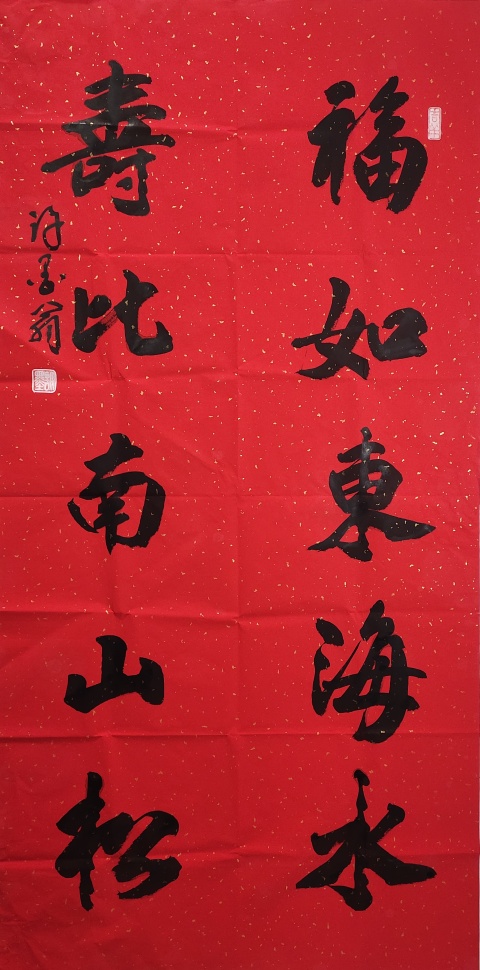 福如東海水
壽比南山松
许墨翁